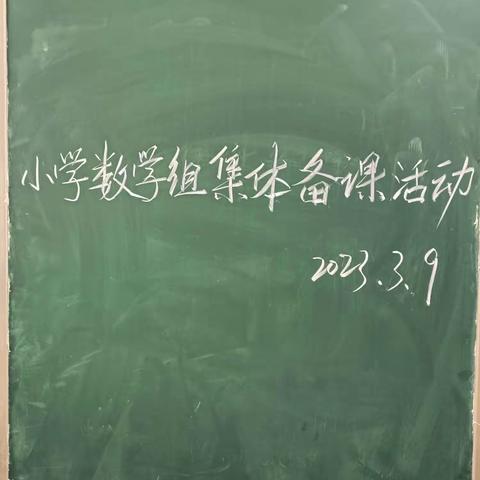 小学数学组集体备课活动
2023.3.9